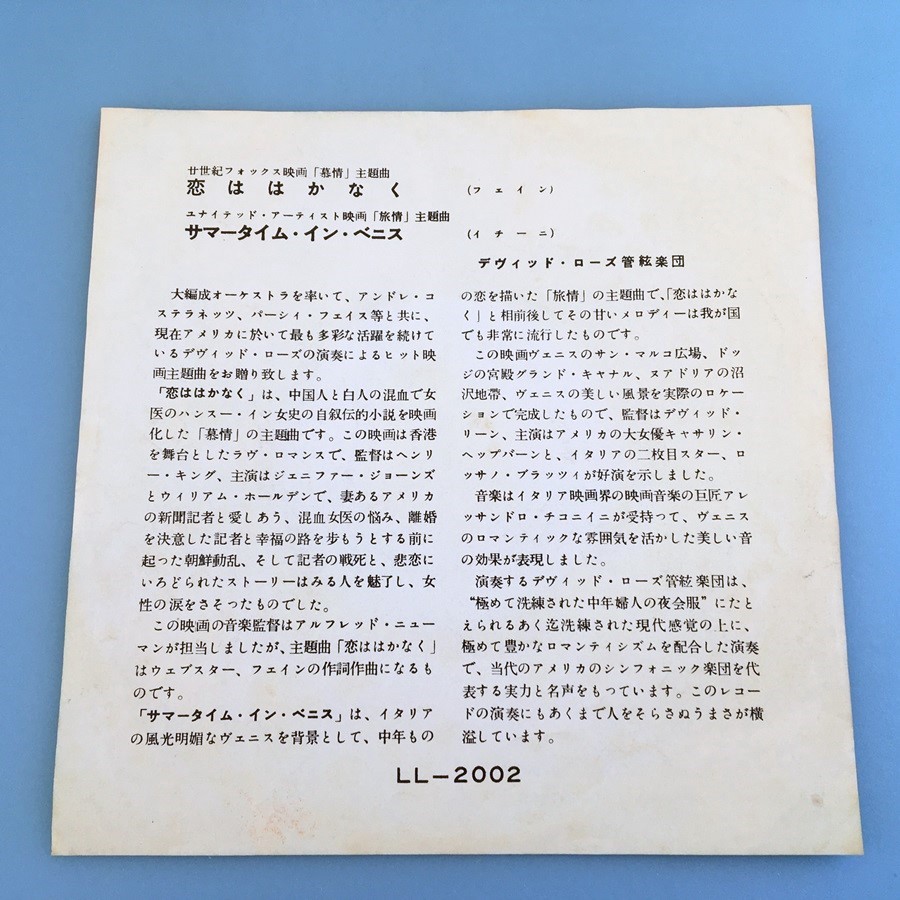 廿世紀フォックス映画「慕情」主題曲
恋ははかなく (フェイン)
ユナイテッド・アーティスト映画「旅情」主題曲
サマータイム・イン・ベニス (イチーニ)
デヴィッド・ローズ管絃楽団
大編成オーケストラを率いて、アンドレ・コ
ステラネッツ、パーシィ・フェイス等と共に、
現在アメリカに於いて最も多彩な活躍を続けて
いるデヴィッド・ローズの演奏によるヒット映
画主題曲をお贈り致します。
「恋ははかなく」は、中国人と白人の混血で女
医のハンスー・イン女史の自叙伝的小説を映画
化した「慕情」の主題曲です。この映画は香港
を舞台としたラヴ・ロマンスで、監督はヘンリ
ー・キング、主演はジェニファー・ジョーンズ
とウィリアム・ホールデンで、妻あるアメリカ
の新聞記者と愛しあう、混血女医の悩み、離婚
を決意した記者と幸福の路を歩もうとする前に
起った朝鮮動乱、そして記者の戦死と、悲恋に
いろどられたストーリーはみる人を魅了し、女
性の涙をさそったものでした。
この映画の音楽監督はアルフレッド・ニュー
マンが担当しましたが、主題曲「恋ははかなく」
はウェブスター、フェインの作詞作曲になるも
のです。
「サマータイム・イン・ベニス」は、イタリア
の風光明媚なヴェニスを背景として、中年もの
の恋を描いた「旅情」の主題曲で、「恋ははかな
く」と相前後してその甘いメロディーは我が国
でも非常に流行したものです。
この映画ヴェニスのサン・マルコ広場、ドッ
ジの宮殿グランド・キャナル、ヌアドリアの沼
沢地帯、ヴェニスの美しい風景を実際のロケー
ションで完成したもので、監督はデヴィッド・
リーン、主演はアメリカの大女優キャサリン・
ヘップバーンと、イタリアの二枚目スター、ロ
ッサノ・ブラッツィが好演を示しました。
音楽はイタリア映画界の映画音楽の巨匠アレ
ッサンドロ・チコニイニが受持って、ヴェニス
のロマンティックな雰囲気を活かした美しい音
の効果が表現しました。
演奏するデヴィッド・ローズ管絃楽団は、
“極めて洗練された中年婦人の夜会服”にたと
えられるあく迄洗練された現代感覚の上に、
極めて豊かなロマンティシズムを配合した演奏
で、当代のアメリカのシンフォニック楽団を代
表する実力と名声をもつています。このレコー
ドの演奏にもあくまで人をそらさぬうまさが横
溢しています。
LL-2002